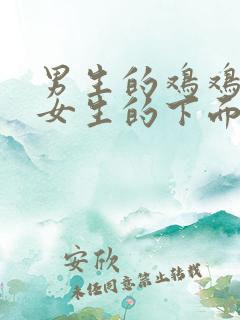 男生的鸡鸡
女生的下面
安欣
未经同意禁止转载